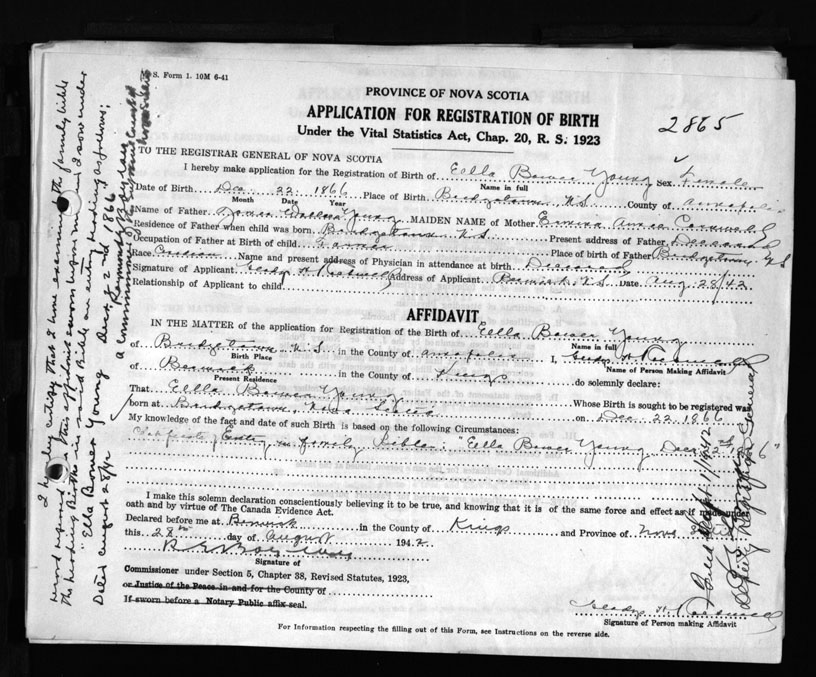 V. S. Form 1. 10M 6-41
PROVINCE OF NOVA SCOTIA
APPLICATION FOR REGISTRATION OF BIRTH
Under the Vital Statistics Act, Chap. 20, R. S. 1923
2865
TO THE REGISTRAR GENERAL OF NOVA SCOTIA
I hereby make application for the Registration of Birth of Eella Bower Young Sex Female
Name in full
Date of Birth Dec. 22. 1866 Place of Birth Bridgetown N.S. County of Annapolis
Month Date Year
Name of Father Young MAIDEN NAME of Mother
Residence of Father when child was born Bridgetown N.S. Present address of Father Deceased
Occupation of Father at Birth of child Farmer Place of birth of Father Bridgetown N.S
Race Name and present address of Physician in attendance at birth Deceased
Signature of Applicant Address of Applicant Berwick, N.S. Date Aug. 28/42
Relationship of Applicant to child
AFFIDAVIT
IN THE MATTER of the application for Registration of the Birth of Eella Bower Young
Name in full
of Bridgetown N.S. in the County of Annapolis I,
Birth Place
Name of Person Making Affidavit
of Berwick in the County of Kings do solemnly declare:
Present Residence
That Eella Bower Young Whose Birth is sought to be registered was
born at Bridgetown, Nova Scotia on Dec. 22, 1866
My knowledge of the fact and date of such Birth is based on the following Circumstances:
Entry in family Bible: "Eella Bower Young Dec. 22nd 1866"
I make this solemn declaration conscientiously believing it to be true, and knowing that it is of the same force and effect as if made under
oath and by virtue of The Canada Evidence Act.
Declared before me at Berwick in the County of Kings and Province of Nova Scotia
this 28th day of August 1942
Signature of
Commissioner under Section 5, Chapter 38, Revised Statutes, 1923,
or Justice of the Peace in and for the County of
If sworn before a Notary Public affix seal.
Signature of Person making Affidavit
For Information respecting the filling out of this Form, see Instructions on the reverse side.
I hereby certify that I have examined the family bible
word referred to in this affidavit sworn before me and I saw under
the heading Births in said Bible an entry reading as follows;
"Ella Bower Young Dec. 22nd 1866
Dated August 28/42
A Commissioner of the Supreme Court of Nova Scotia
Deputy Registrar General